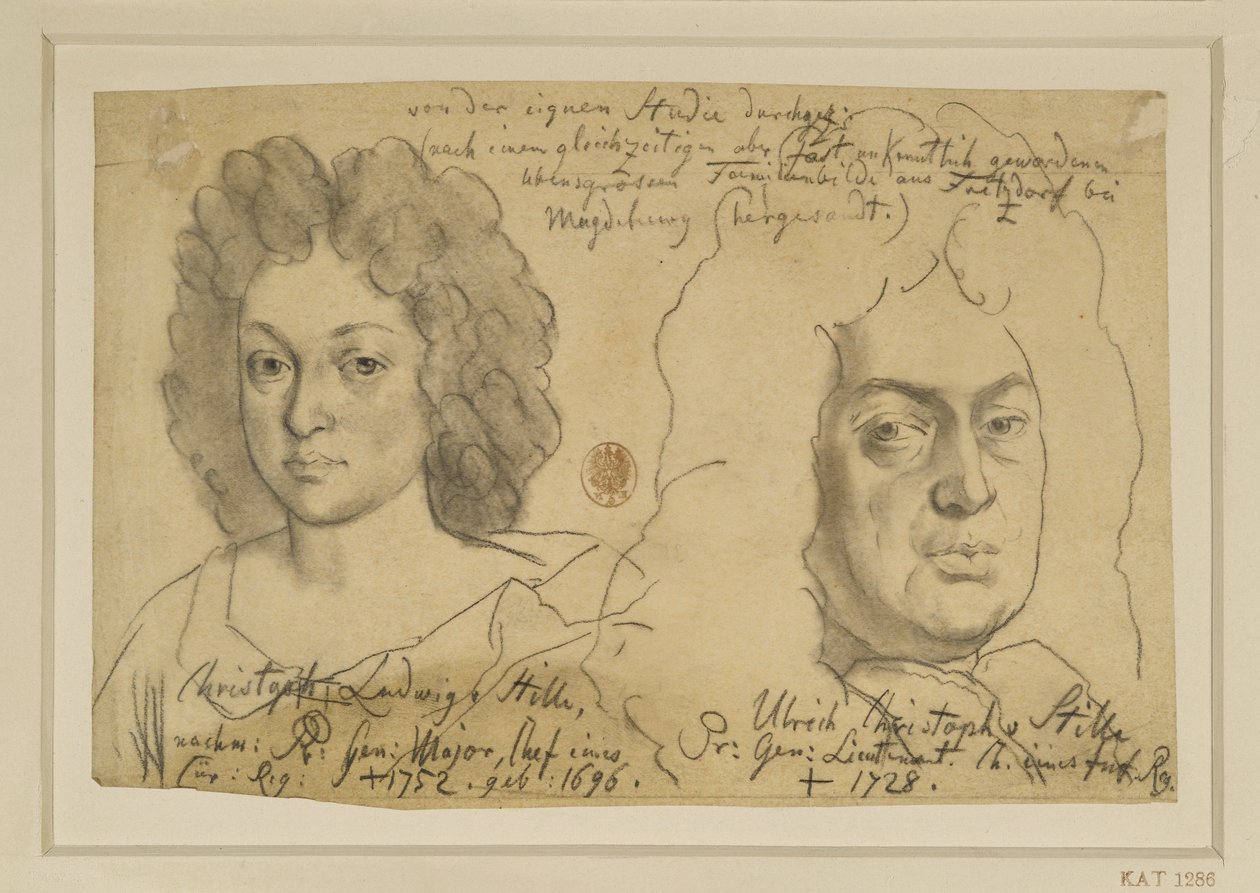 von der eignen Studie durchgez:
(nach einem gleichzeitigen aber fast unkenntlich gewordenen
lebensgrosen Familienbilde aus Fretzdorf bei
Magdeburg hergesandt.)
Christoph Ludwig v Stille,
nachm: Pr: Gen: Major, Chef eines
Cür: Reg: +1752. geb: 1696.
Ulrich Christoph v Stille
Pr: Gen: Lieuttenant. Ch. eines Inf. Rg.
+ 1728.
KAT 1286